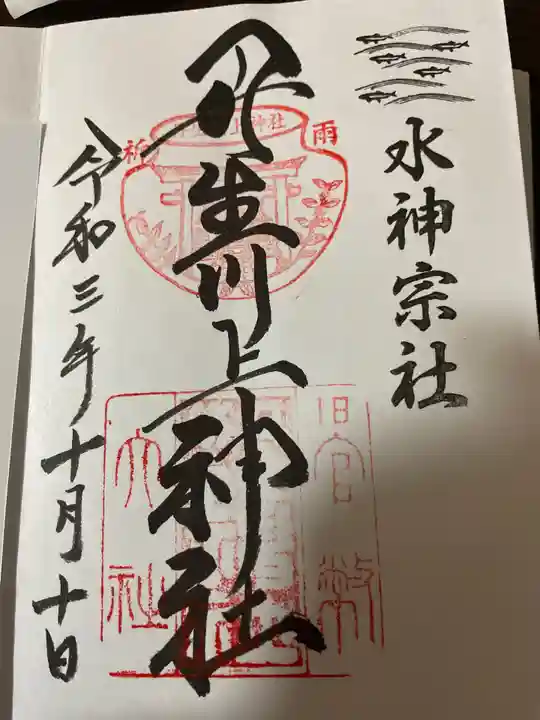 水神宗社
丹生川上神社
令和三年十月十日
雨
祈
神社
旧官幣
大社